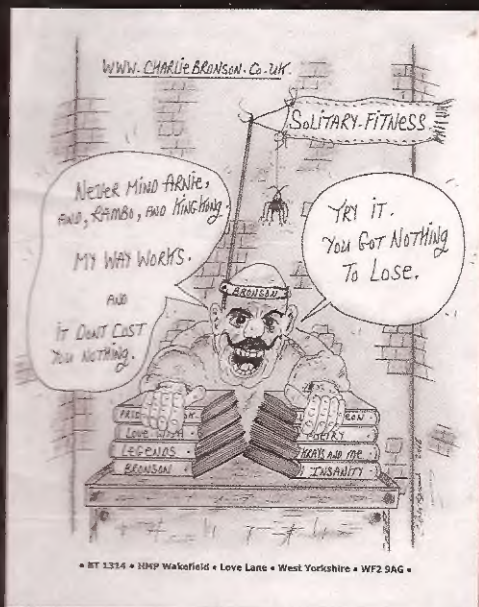 WWW.CHARLIEBRONSON.CO.UK.
SOLITARY-FITNESS.
NEVER MIND ARNIE,
AND, RAMBO, AND KINGKONG.
MY WAY WORKS.
AND
IT DONT COST
YOU NOTHING.
TRY IT.
YOU GOT NOTHING
TO LOSE.
BRONSON
LOVE
LEGENDS
BRONSON
POETRY
KRAYS AND ME
INSANITY
• BT 1314 • HMP Wakefield • Love Lane • West Yorkshire • WF2 9AG •